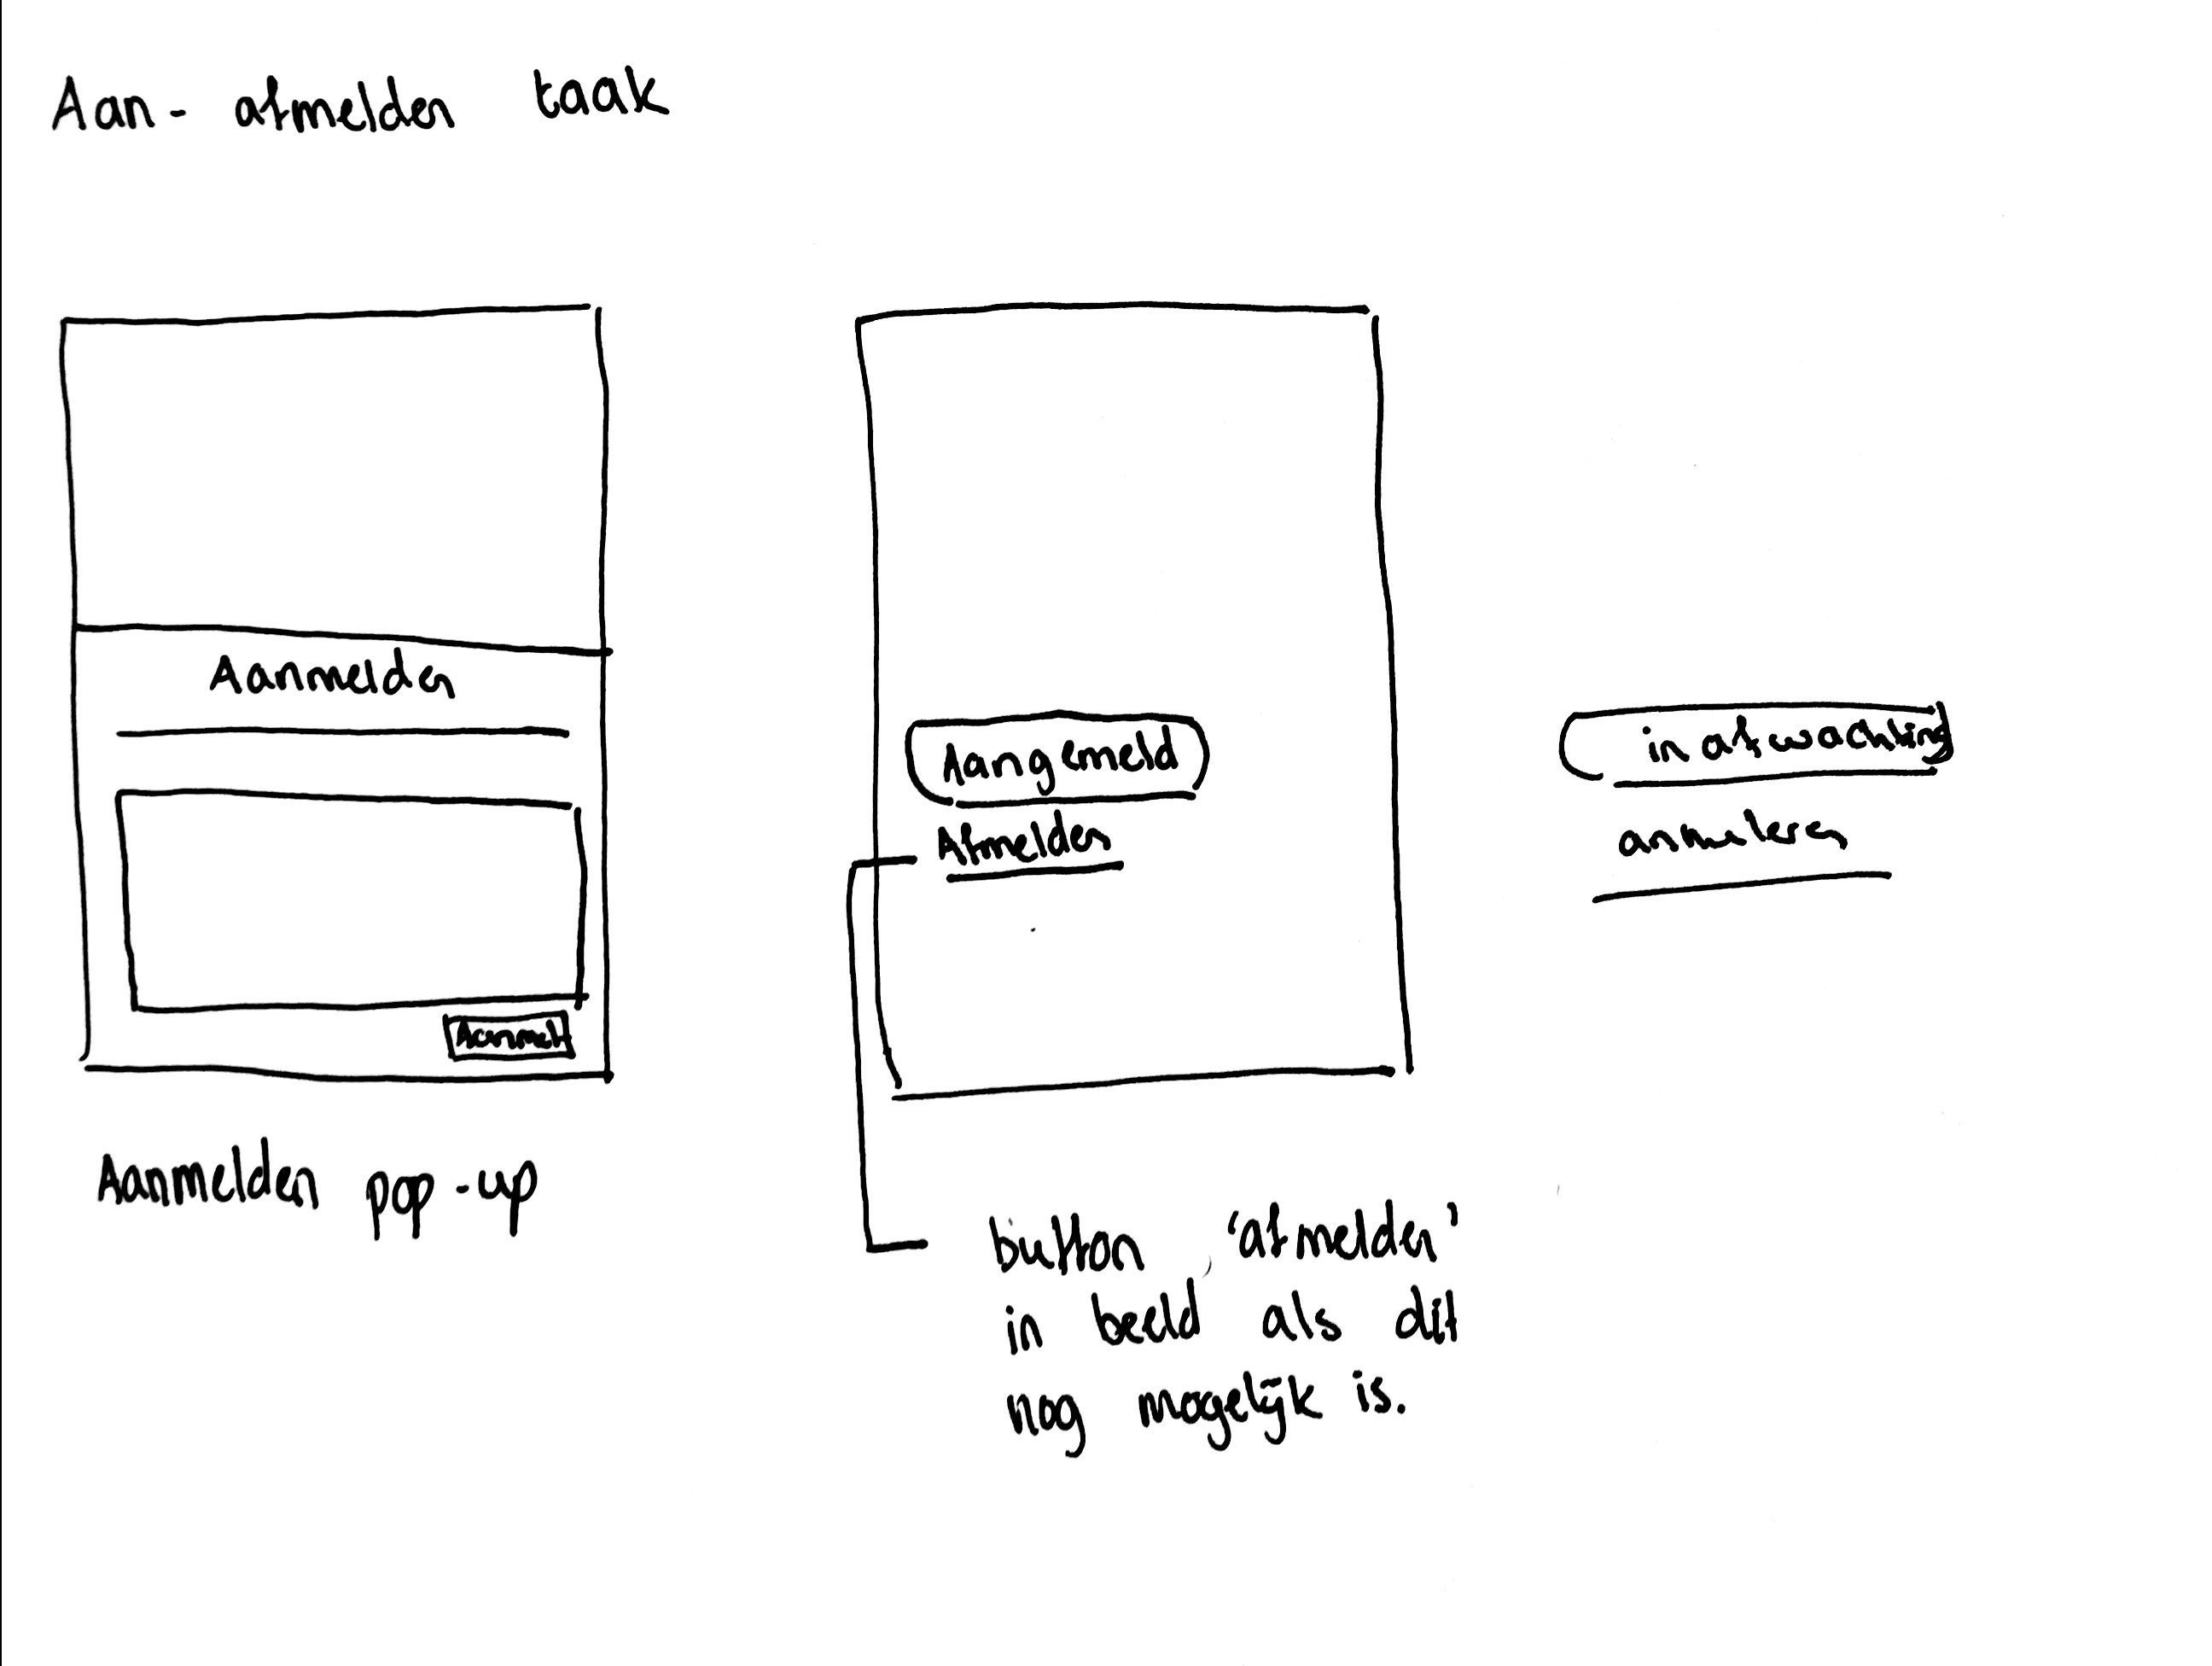 Aan- afmelden taak
Aanmelden
Aanmeld
Aanmelden pop-up
Aangemeld
Afmelden
button 'afmelden'
in beeld als dit
nog mogelijk is.
in afwachting
annuleren